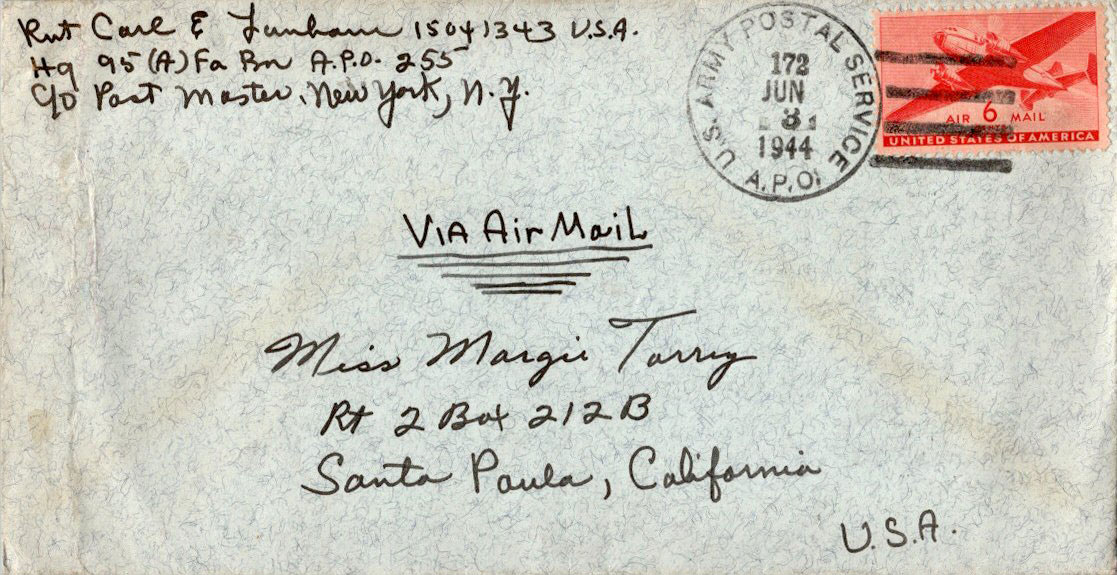 Pvt Carl E Lanham 15041343 U.S.A.
Hq 95 (A) Fa Bn A.P.O. 255
C/O Post Master, New York, N.Y.
U.S. ARMY POSTAL SERVICE
172
JUN
3
1944
A.P.O.
AIR 6 MAIL
UNITED STATES OF AMERICA
VIA Air Mail
Miss Margie Torrey
Rt 2 Box 212 B
Santa Paula, California
U.S.A.